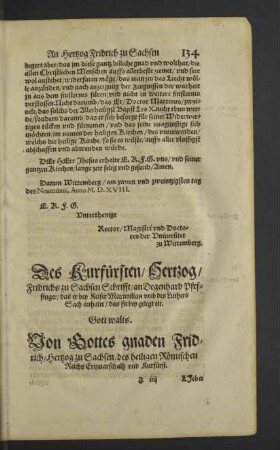 An Hertzog Fridrich zu Sachsen 134.
begert aber, das jm diese gantz billiche gnad vnd wolthat, die
allen Christlichen Menschen auffs allerhöhest gemein, vnd für
wol anstehet, widerfaren müge, das man jm das Liecht wölle
anzünden, vnd nach anzeigung der Zeugnussen der warheit
jn aus dem finsternis füren, vnd nicht in weiter finsternis
verstossen. Nicht darumb, das Er, Doctor Martinus, zweiuele,
das solchs der Allerheiligst Bapst Leo nicht thun werde,
sondern darumb das er sich besorge für seiner Widerwertigen
tücken vnd fürnemen, vnd das jene mutwillige sich
möchten, im namen der heiligen Kirchen, des vnterwinden,
welchs die heilige Kirche, so sie es wüste, auffs aller vleissigst
abschaffen vnd abwenden würde.
DEr HErr Jhesus erhalte E.K.F.G. vns, vnd seiner
gantzen Kirchen, lange zeit selig vnd gesund, Amen.
Datum Wittemberg, am zween vnd zwentzigsten tag
des Nouembris, Anno M. D. XVIII.
E. K. F. G.
Vnterthenige
Rector, Magistri vnd Doctores
der Vniuersitet
zu Wittemberg.
Des Kurfürsten, Hertzog
Fridrichs zu Sachsen Schrifft, an Degenhard Pfeffinger,
das er bey Keiser Maximilian von des Luthers
Sach anhalte, das sie bey gelegt werde.
Gott walts.
Von Gottes gnaden Fridrich,
Hertzog zu Sachsen, des heiligen Römischen
Reichs Ertzmarschalh vnd Kurfürst.
Z iiij Lieber